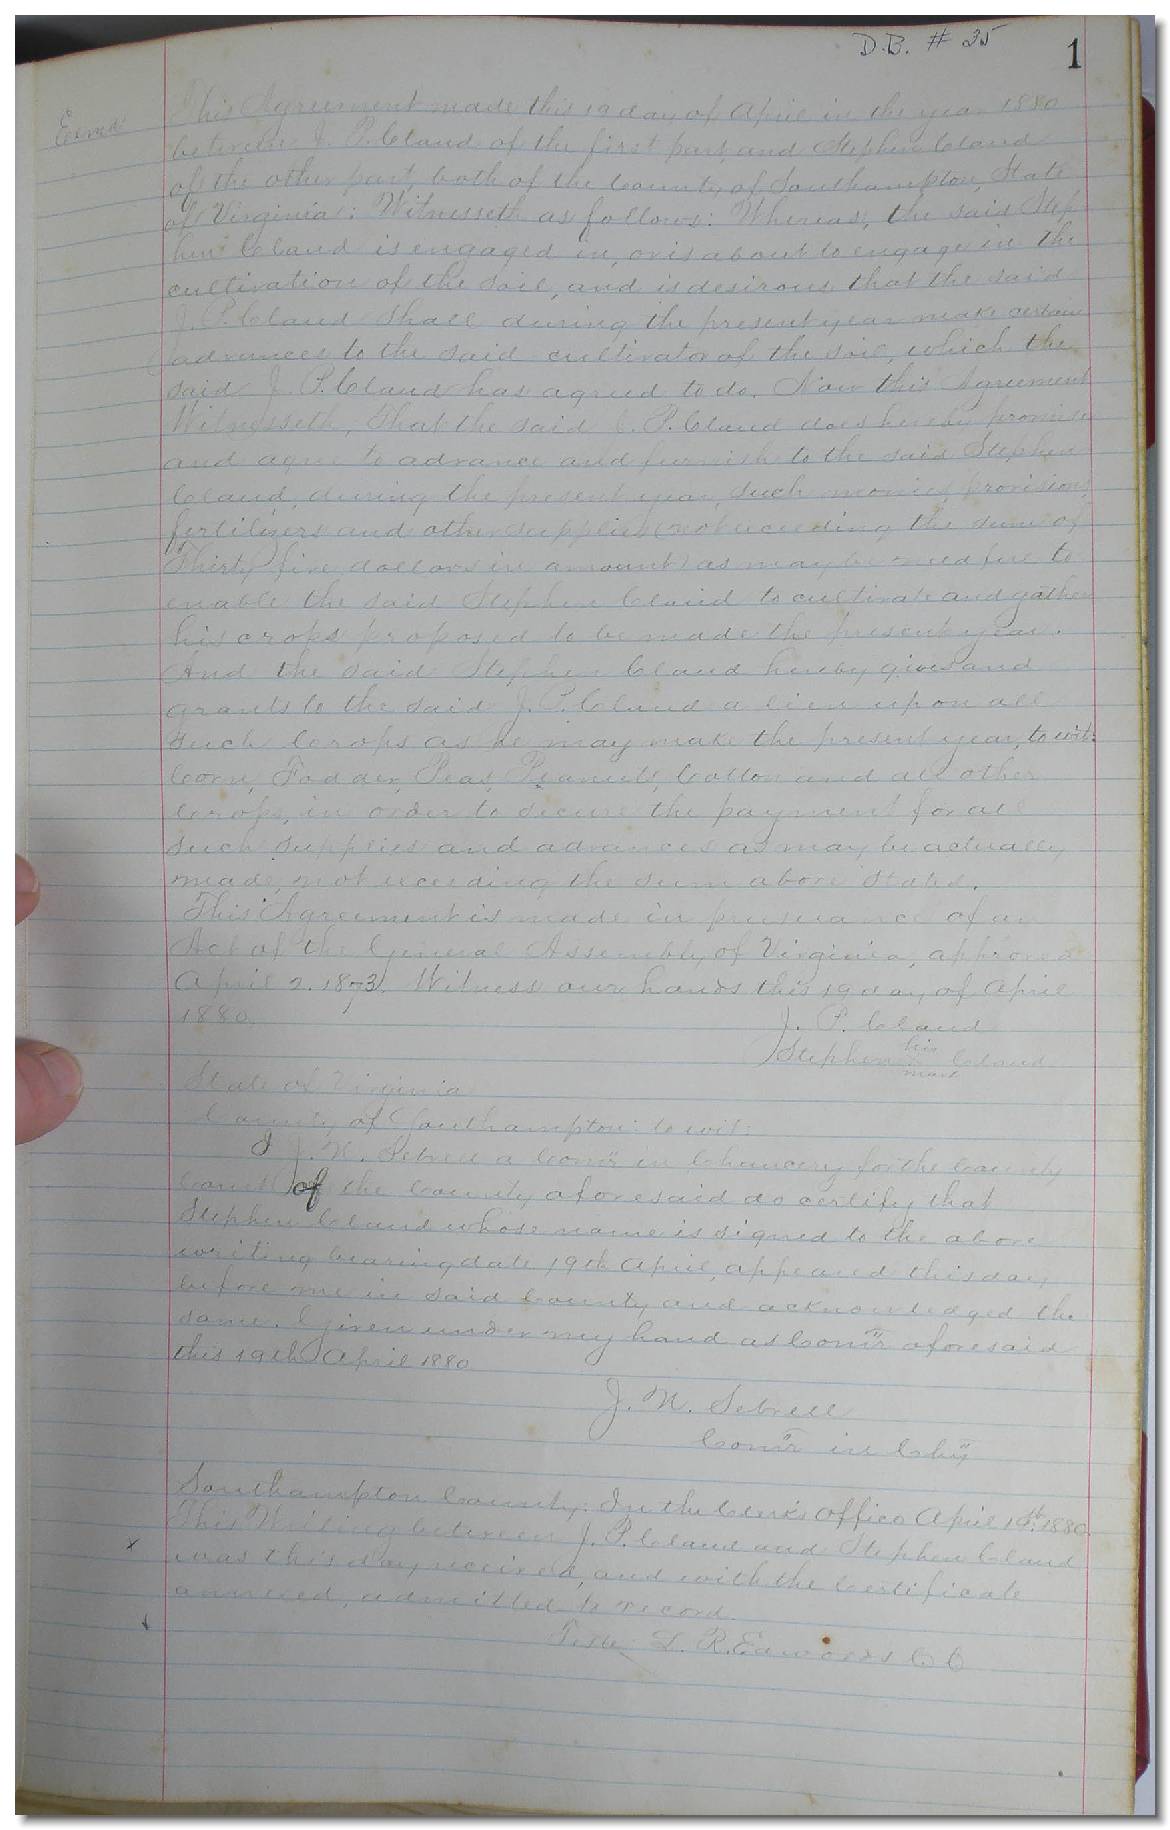 D.B. # 35
1
Exmd
This Agreement made this 19 day of April in the year 1880
between J. P. Claud of the first part, and Stephen Claud
of the other part, both of the County of Southampton, State
of Virginia; Witnesseth as follows: Whereas, the said Step
hen Claud is engaged in, or is about to engage in the
cultivation of the soil, and is desirous that the said
J. P. Claud shall during the present year make certain
advances to the said cultivator of the soil, which the
said J. P. Claud has agreed to do. Now this Agreement
Witnesseth, That the said J. P. Claud does hereby promise
and agree to advance and furnish to the said Stephen
Claud, during the present year, such monies, provisions,
fertilizers and other supplies (not exceeding the sum of
Thirty five dollars in amount) as may be needful to
enable the said Stephen Claud to cultivate and gather
his crops proposed to be made the present year.
And the said Stephen Claud hereby gives and
grants to the said J. P. Claud a lien upon all
such Crops as he may make the present year, to wit:
Corn, Fodder, Peas, Peanuts, Cotton and all other
Crops, in order to secure the payment for all
such supplies and advances as may be actually
made, not exceeding the sum above stated.
This Agreement is made in pursuance of an
Act of the General Assembly of Virginia, approved
April 2. 1873. Witness our hands this 19 day of April
1880.
J. P. Claud
Stephen his x mark Claud
State of Virginia
County of Southampton: to wit:
I J. N. Sebrell a Comr in Chancery for the County
Court of the County aforesaid do certify that
Stephen Claud whose name is signed to the above
writing bearing date 19th April, appeared this day
before me in said County and acknowledged the
same. Given under my hand as Comr aforesaid
this 19th April 1880
J. N. Sebrell
Comr in Chy
Southampton County: In the Clerk's Office April 19th 1880.
This Writing between J. P. Claud and Stephen Claud
was this day received, and with the Certificate
annexed, admitted to record.
Teste L. R. Edwards C C